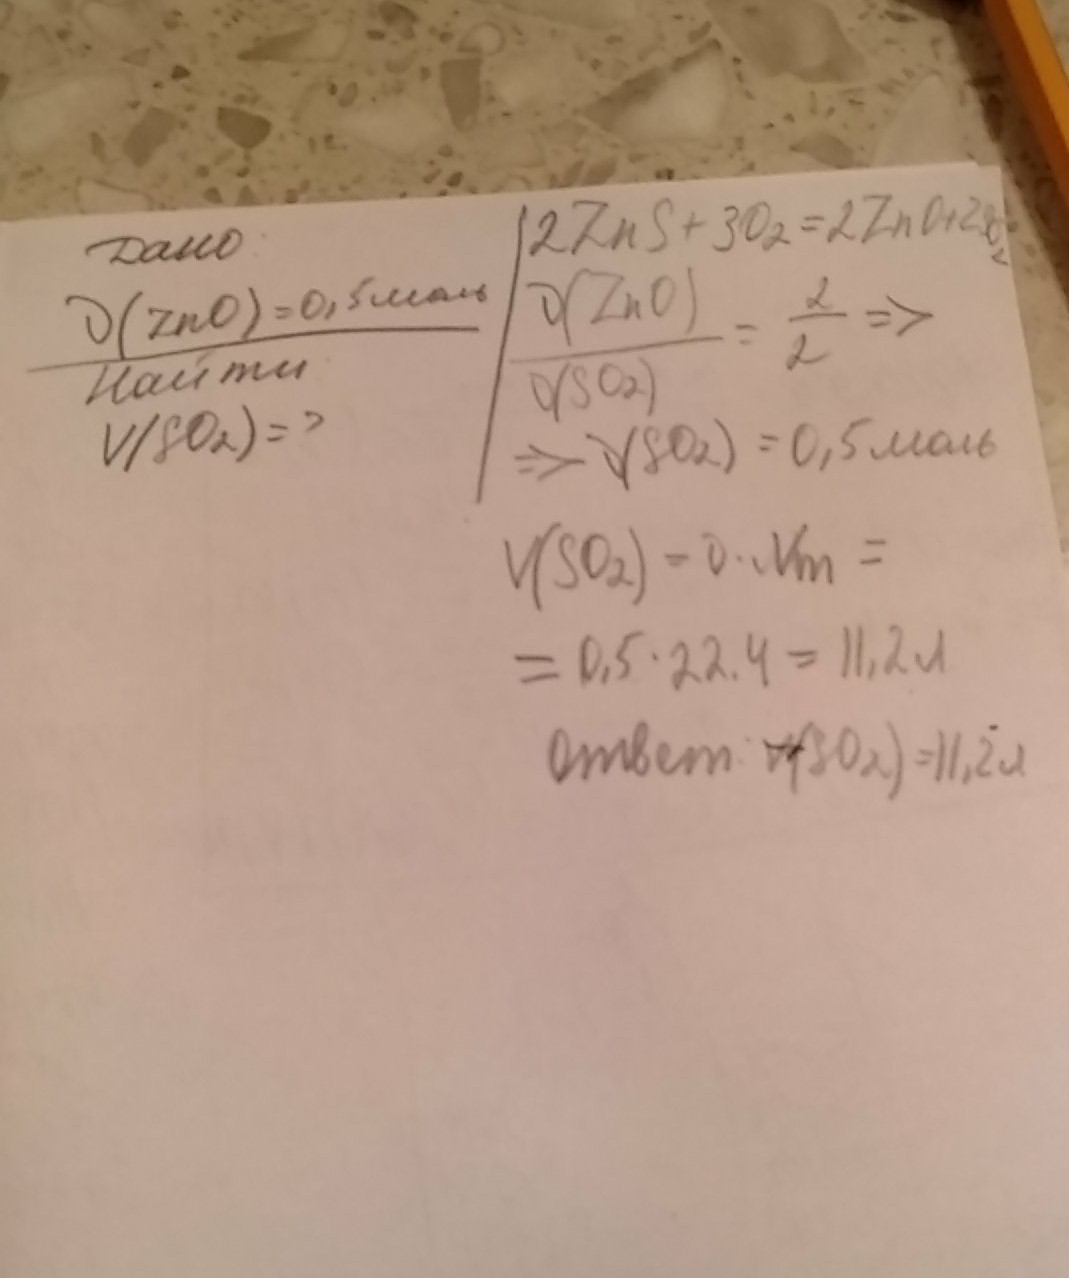 Дано:
ν(ZnO)=0,5моль
Найти
V(SO₂)=?
2ZnS+3O₂=2ZnO+2SO₂
ν(ZnO)
ν(SO₂)
= 2/2 =>
=> ν(SO₂) = 0,5моль
V(SO₂) = ν·Vm =
= 0,5·22.4 = 11,2л
Ответ: V(SO₂)=11,2л